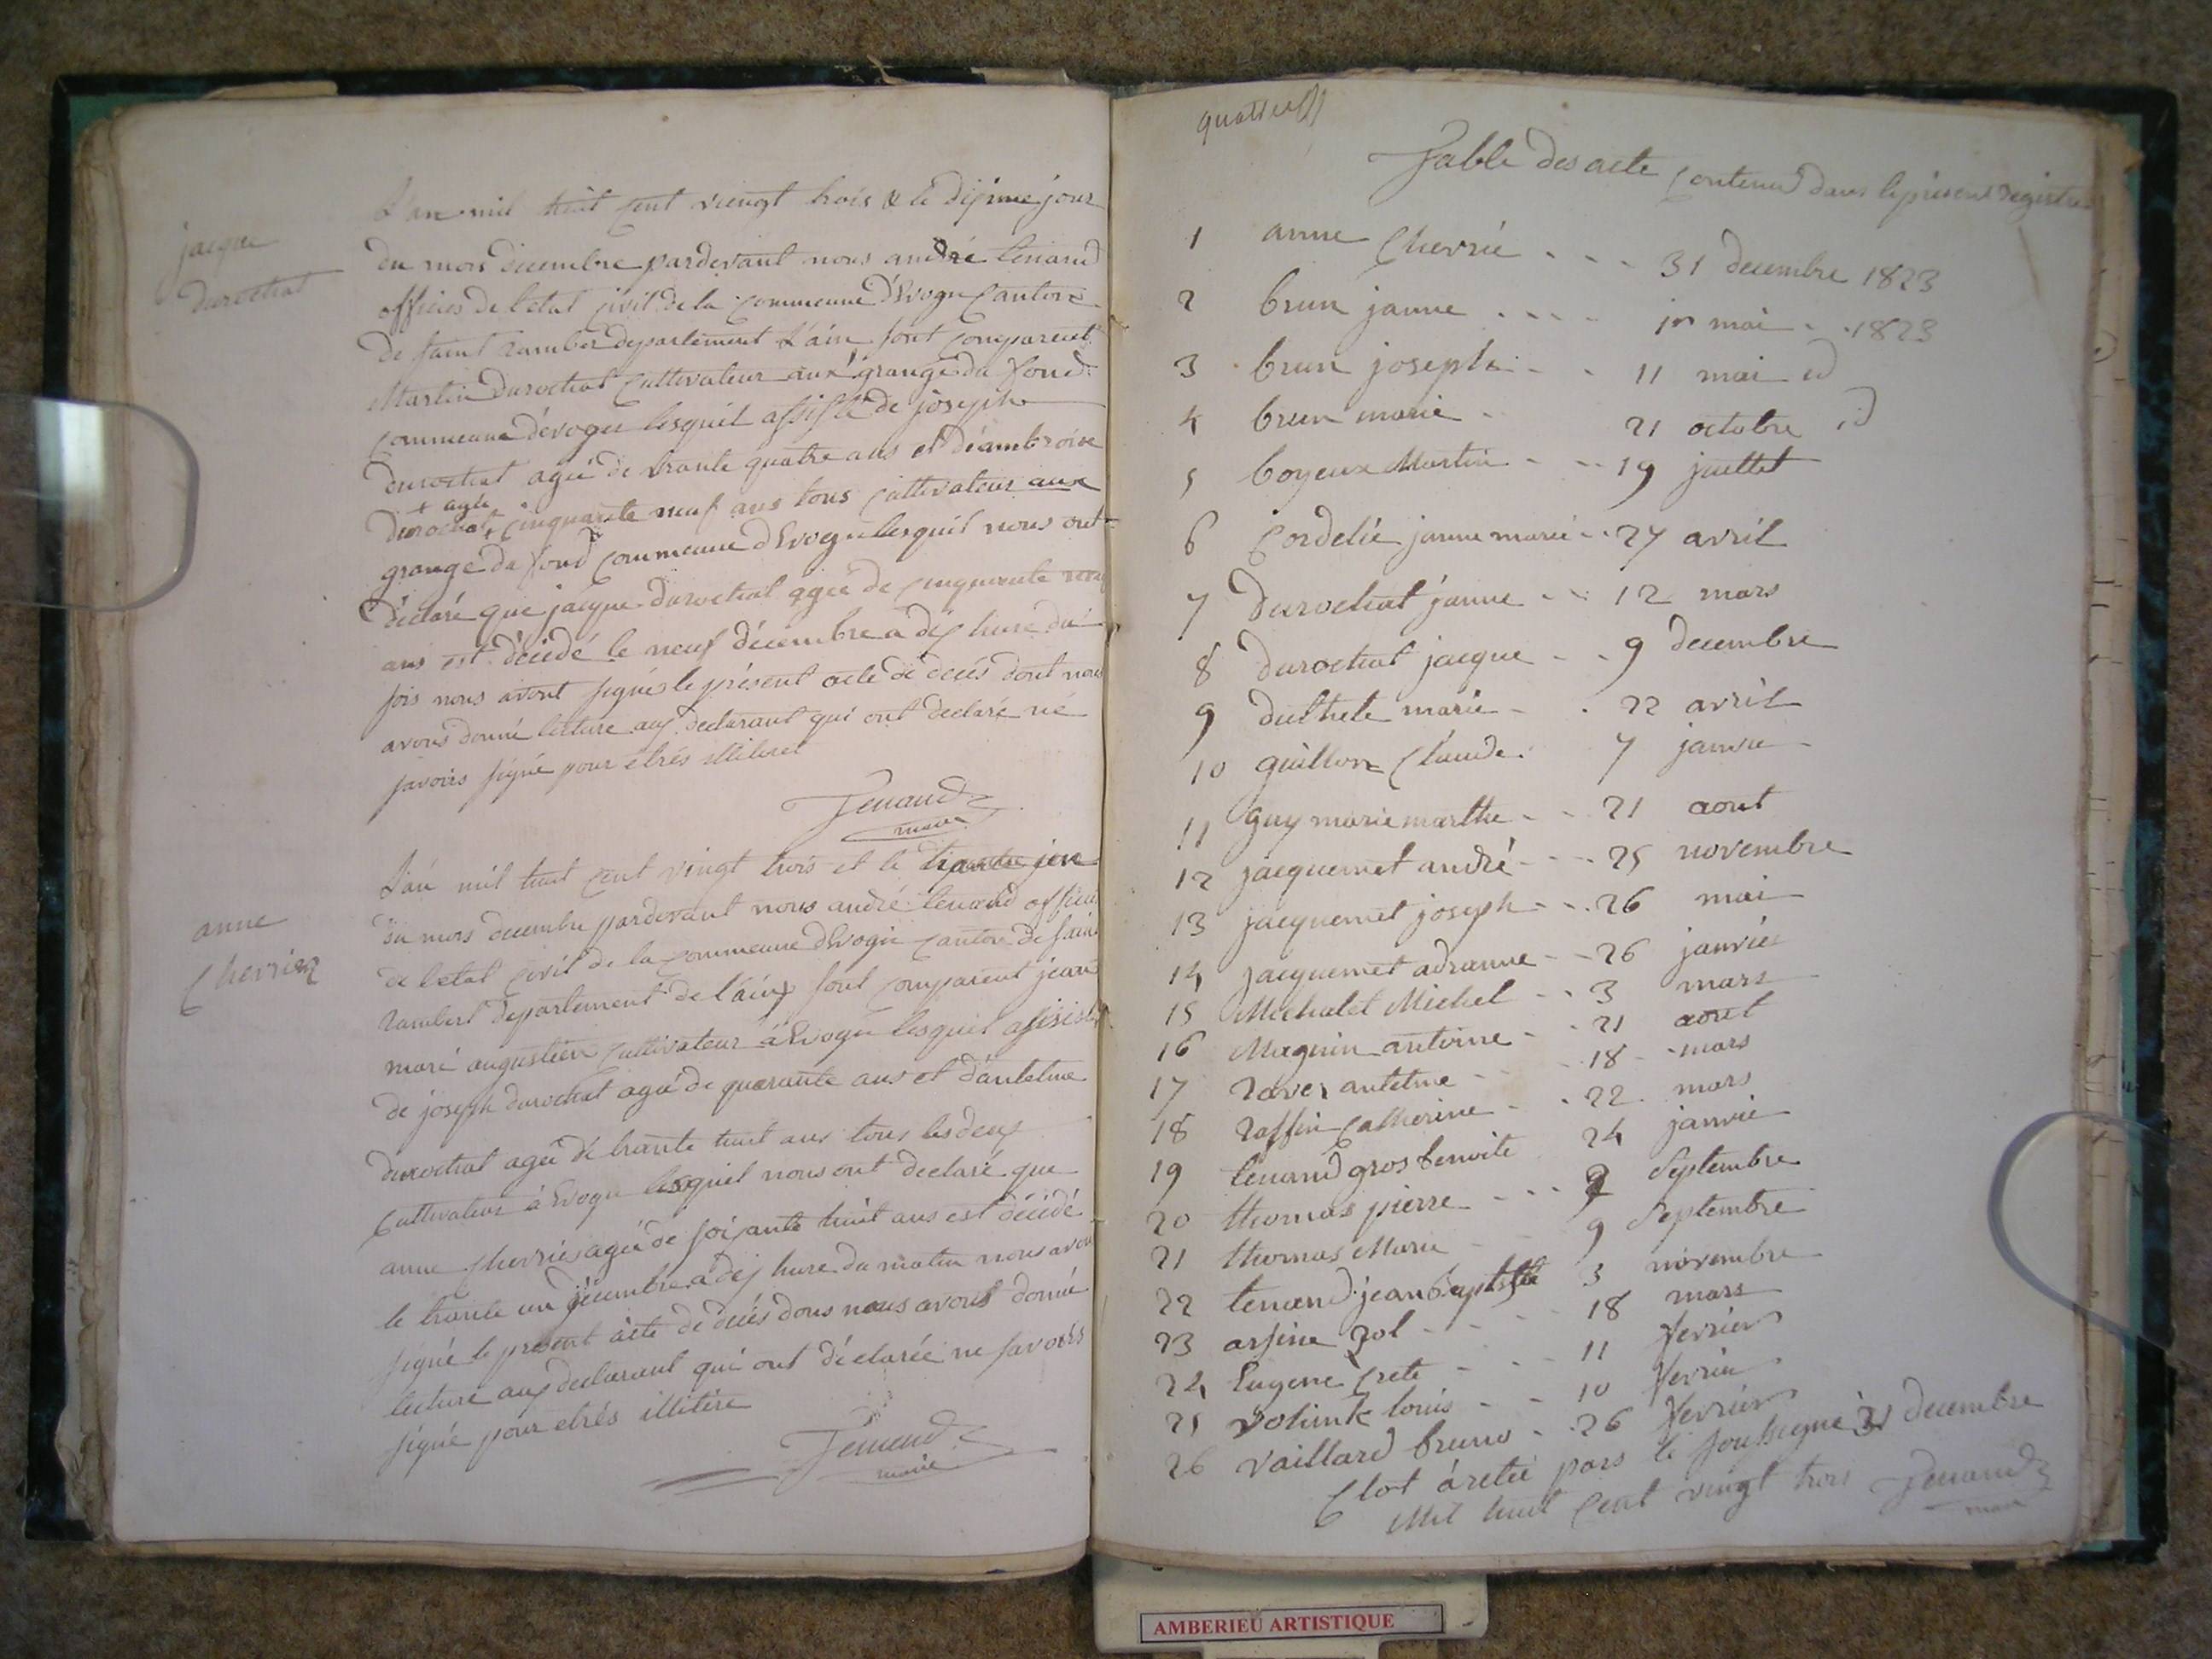 jacque
durochat
L'an mil huit cent vengt trois & le dixime jour
du mois decembre pardevant nous andré tenand
officies de l'etat civil de la commeune d'Evoge canton
de saint rambes departement L'ain sont comparent
Martin durochat cultivateur aux grange du fond
commeune d'evoge lesquel assisté de joseph
durochat agée de trante quatre ans et d'ambroise
+ agée
durochat + cinquante neuf ans tous cultivateur aux
grange du fond commeune d'Evoge lesquel nous ont
déclaré que jacque durochat agée de cinquante neuf
ans est décédé le neuf décembre a dix hure du
sois nous avont signés le présent acte de décés dont nous
avons donné lecture aux declarant qui ont declaré ne
savoirs signé pour etrés illiteret
Tenand
maire
anne
Cherrier
L'an mil huit cent vingt trois et le
du mois decembre pardevant nous andré tenand officie
de l'etat civil de la commeune d'Evoge canton de saint
rambert departement de l'ain sont comparent jean
mari augustien cultivateur a Evoge lesquel assisté
de joseph durochat agée de quarante ans et d'antelme
durochat agée de trante huit ans tous les deux
cultivateur à Evoge lesquel nous ont declaré que
anne cherrier agée de soixante huit ans est décédé
le trante un décembre a dix hure du matin nous avon
signé le present acte de décés dons nous avons donné
lecture aux declarant qui ont déclarée ne savoirs
signé pour etrés illitére
Tenand
maire
Table des acte contenu dans le présent registre
1 anne Cherrié 31 decembre 1823
2 brun janne 1er mai 1823
3 brun joseph 11 mai id
4 brun marie 21 octobre id
5 boyeux Martin 19 juillet
6 Cordelié janne marie 27 avril
7 Durochat janne 12 mars
8 durochat jacque 9 decembre
9 duthele marie 22 avril
10 guillon Claude 7 janvie
11 guy marie marthe 21 aout
12 jacquemet andré 25 novembre
13 jacquemet joseph 26 mai
14 jacquemet adranne 26 janvié
15 Michalet Michel 3 mars
16 Magnin antoine 21 aout
17 raver antelme 18 mars
18 raffin Catherine 22 mars
19 tenand gros benoite 24 janvié
20 thomas pierre 9 Septembre
21 thomas Marie 9 Septembre
22 tenand jean baptiste 3 novembre
23 arsine zol 18 mars
24 Eugene Crete 11 fevrier
25 volimk louis 10 fevrier
26 vaillard bruno 26 fevrier
Clot áretée pars le soussigné 31 decembre
Mil huit cent vingt trois Tenand
maire
AMBERIEU ARTISTIQUE